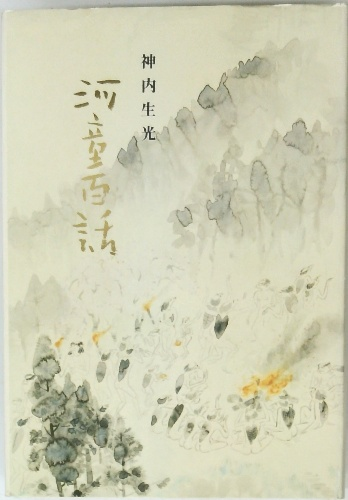 神内生光
河童百話